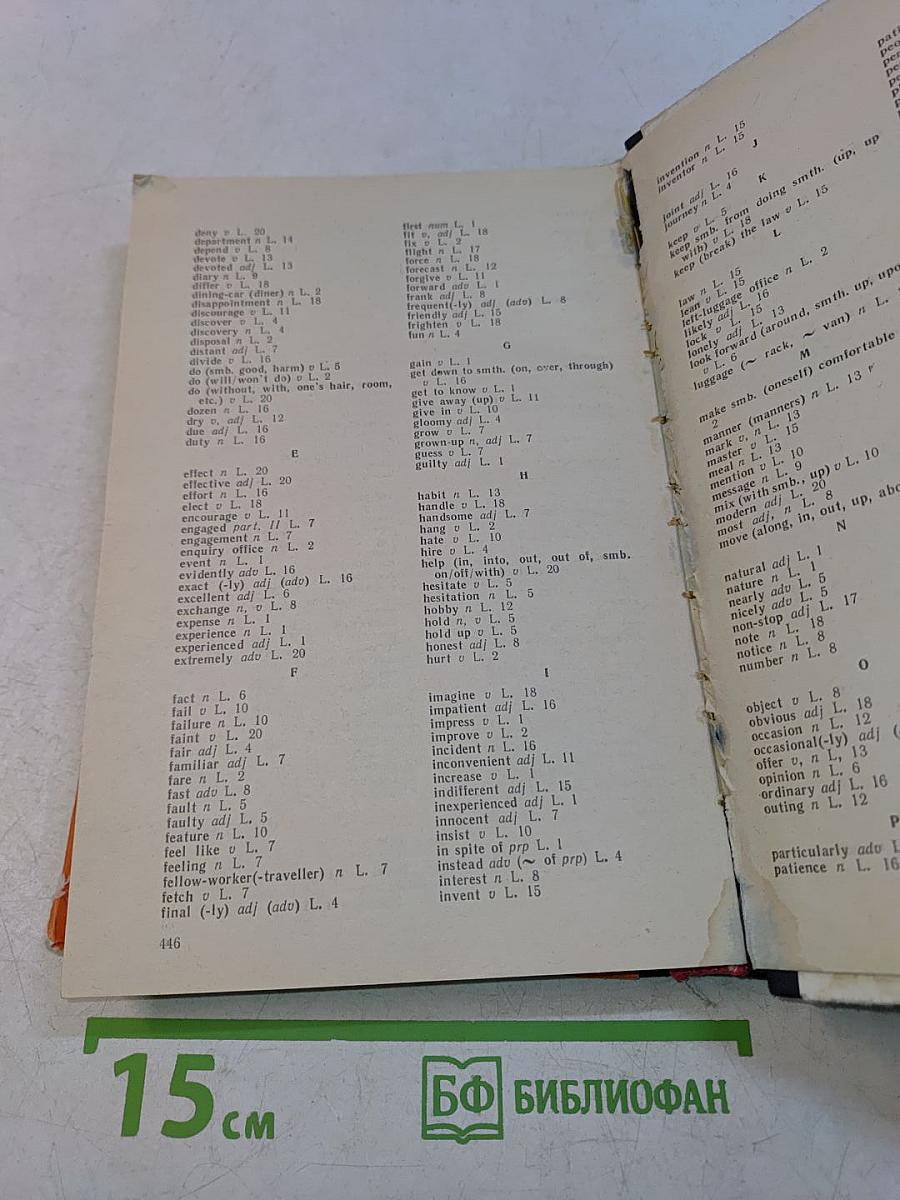 deny v L. 20
department n L. 14
depend v L. 8
devote v L. 13
devoted adj L. 13
diary n L. 9
differ v L. 18
dining-car (diner) n L. 2
disappointment n L. 18
discourage v L. 11
discover v L. 4
discovery n L. 4
disposal n L. 2
distant adj L. 7
divide v L. 16
do (smb. good, harm) v L. 5
do (will/won't do) v L. 2
do (without, with, one's hair, room,
etc.) v L. 20
dozen n L. 16
dry v, adj L. 12
due adj L. 16
duty n L. 16
E
effect n L. 20
effective adj L. 20
effort n L. 16
elect v L. 18
encourage v L. 11
engaged part. II L. 7
engagement n L. 7
enquiry office n L. 2
event n L. 1
evidently adv L. 16
exact (-ly) adj (adv) L. 16
excellent adj L. 6
exchange n, v L. 8
expense n L. 1
experience n L. 1
experienced adj L. 1
extremely adv L. 20
F
fact n L. 6
fail v L. 10
failure n L. 10
faint v L. 20
fair adj L. 4
familiar adj L. 7
fare n L. 2
fast adv L. 8
fault n L. 5
faulty adj L. 5
feature n L. 10
feel like v L. 7
feeling n L. 7
fellow-worker(-traveller) n L. 7
fetch v L. 7
final (-ly) adj (adv) L. 4
446
first num L. 1
fit v, adj L. 18
fix v L. 2
flight n L. 17
force n L. 18
forecast n L. 12
forgive v L. 11
forward adv L. 1
frank adj L. 8
frequent(-ly) adj (adv) L. 8
friendly adj L. 15
frighten v L. 18
fun n L. 4
G
gain v L. 1
get down to smth. (on, over, through)
v L. 16
get to know v L. 1
give away (up) v L. 11
give in v L. 10
gloomy adj L. 4
grow v L. 7
grown-up n, adj L. 7
guess v L. 7
guilty adj L. 1
H
habit n L. 13
handle v L. 18
handsome adj L. 7
hang v L. 2
hate v L. 10
hire v L. 4
help (in, into, out, out of, smb.
on/off/with) v L. 20
hesitate v L. 5
hesitation n L. 5
hobby n L. 12
hold n, v L. 5
hold up v L. 5
honest adj L. 8
hurt v L. 2
I
imagine v L. 18
impatient adj L. 16
impress v L. 1
improve v L. 2
incident n L. 16
inconvenient adj L. 11
increase v L. 1
indifferent adj L. 15
inexperienced adj L. 1
innocent adj L. 7
insist v L. 10
in spite of prp L. 1
instead adv (~ of prp) L. 4
interest n L. 8
invent v L. 15
invention n L. 15
inventor n L. 15
J
joint adj L. 16
journey n L. 4
K
keep v L. 5
keep smb. from doing smth. (up, up
with) v L. 18
keep (break) the law v L. 15
L
law n L. 15
lean v L. 15
left-luggage office n L. 2
likely adj L. 16
lock v L. 15
lonely adj L. 13
look forward (around, smth. up,
v L. 6
luggage (~ rack, ~ van) n L.
M
make smb. (oneself) comfortable
2
manner (manners) n L. 13
mark v, n L. 13
master v L. 15
meal n L. 13
mention v L. 10
message n L. 9
mix (with smb., up) v L. 10
modern adj L. 20
most adj, n L. 8
move (along, in, out, up,
N
natural adj L. 1
nature n L. 1
nearly adv L. 5
nicely adv L. 5
non-stop adj L. 17
note n L. 18
notice n L. 8
number n L. 8
O
object v L. 8
obvious adj L. 18
occasion n L. 12
occasional(-ly) adj (
offer v, n L, 13
opinion n L. 6
ordinary adj L. 16
outing n L. 12
P
particularly adv L
patience n L. 16
15 см
БФ БИБЛИОФАН